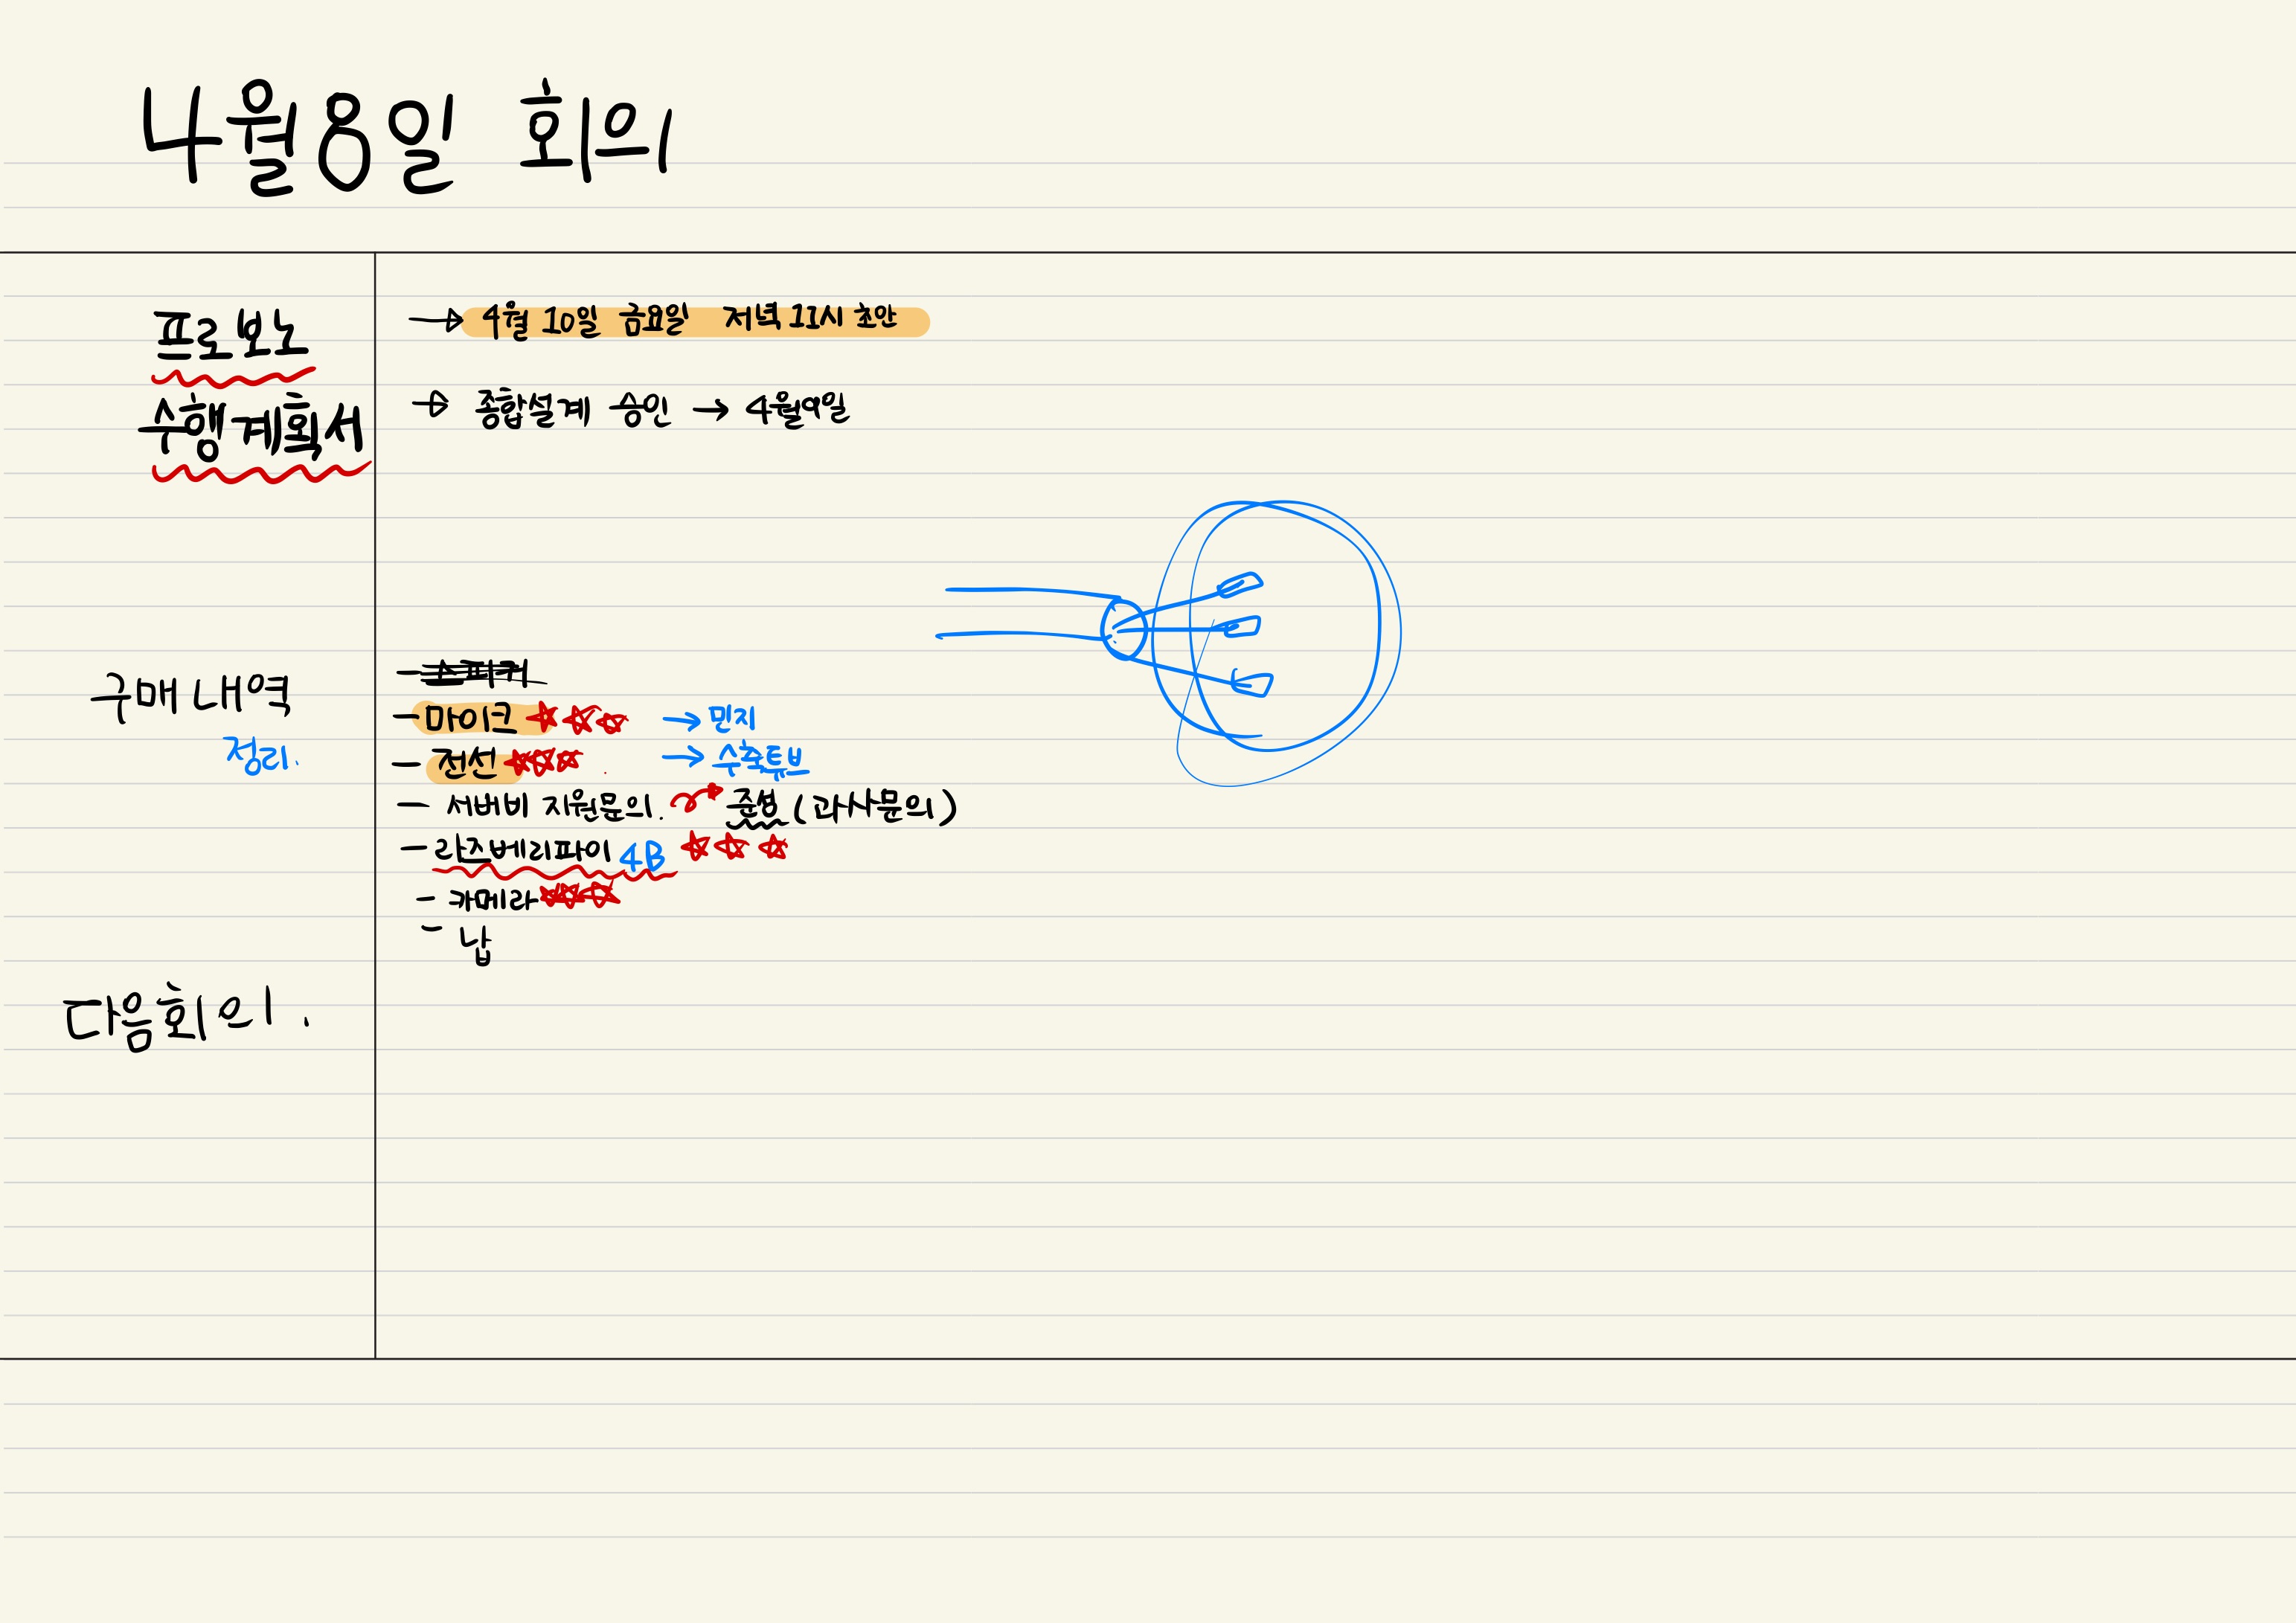 4월8일 회의
프로보노
수행계획서
→ 4월 10일 금요일 저녁 11시 초안
→ 종합설계 승인 → 4월9일
구매내역
정리.
- 스피커
- 마이크 → 민지
- 전선 → 수축튜브
- 서버비 지원문의. 준성 (과사문의)
- 라즈베리파이 4B
- 카메라
- 납
다음회의.